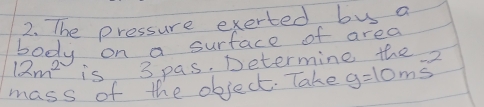 2. The pressure exerted by a
body on a surface of area
12m² is 3 pas. Determine the
mass of the object. Take g=10ms⁻²